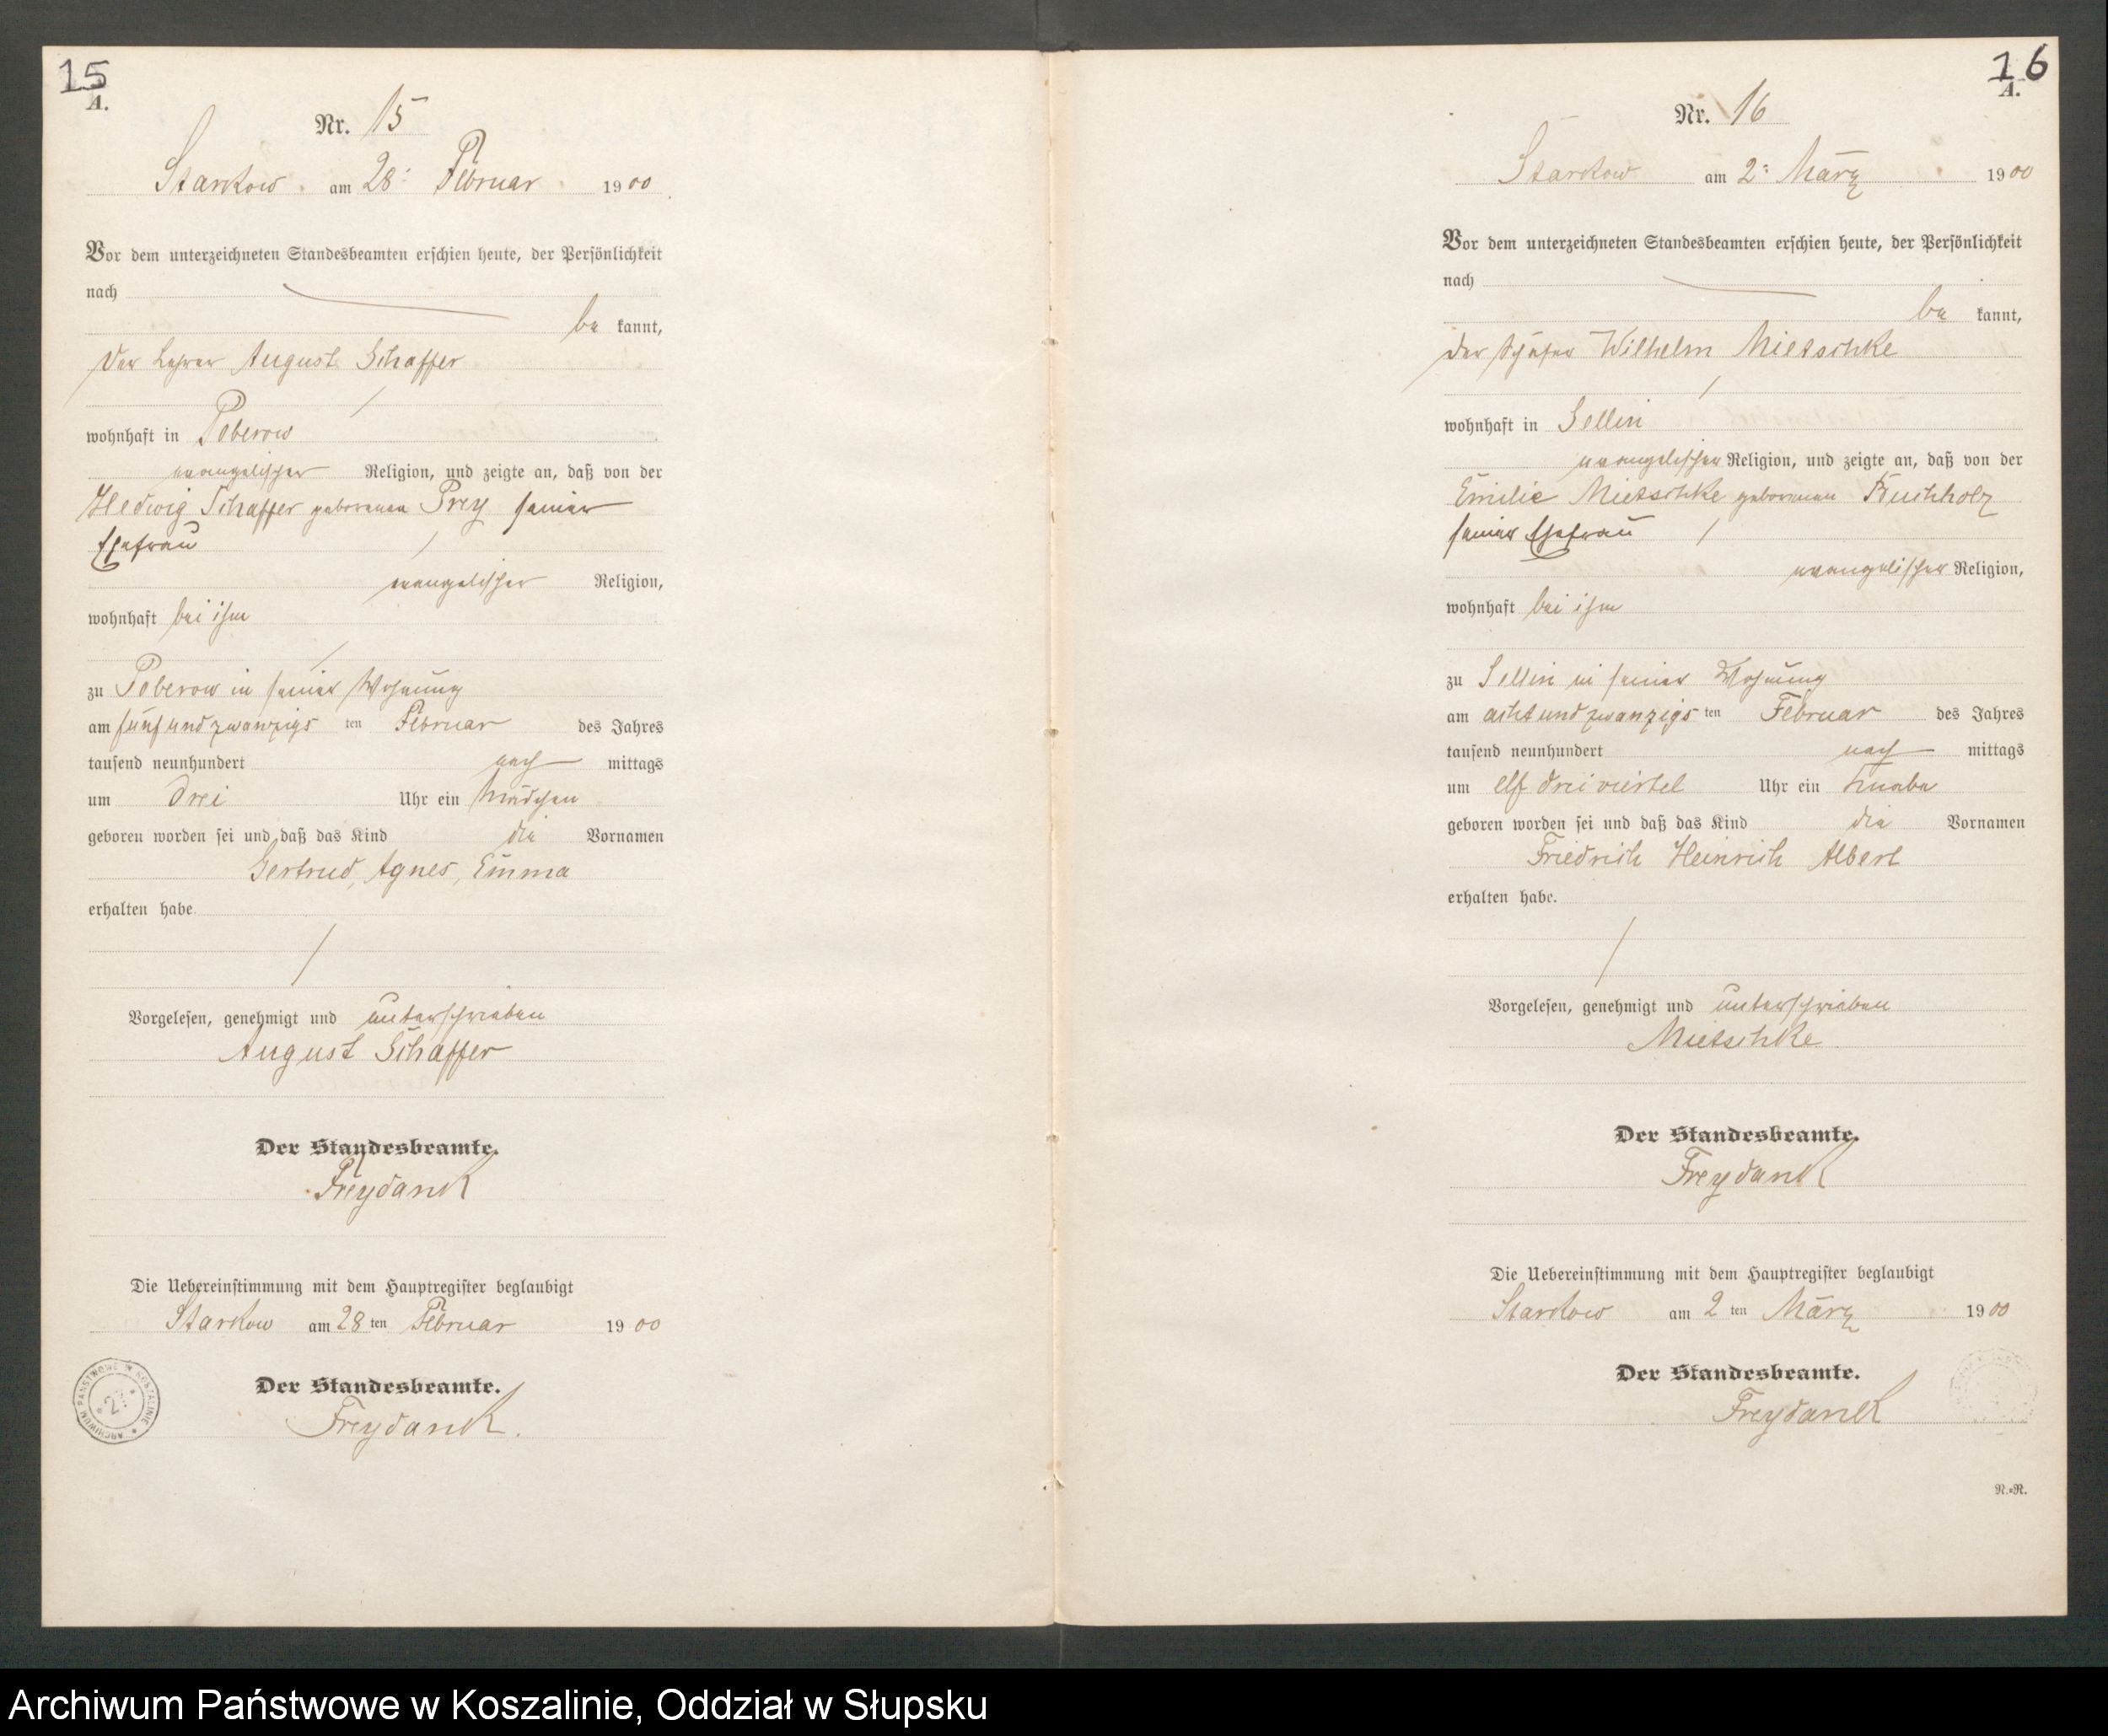 15
A.
Nr. 15
Starkow am 28ᵗ Februar 1900
Vor dem unterzeichneten Standesbeamten erschien heute, der Persönlichkeit
nach
be kannt,
der Lehrer August Schaffer
wohnhaft in Poberow
evangelischer Religion, und zeigte an, daß von der
Hedwig Schaffer geborenen Prey seiner
Ehefrau
evangelischer Religion,
wohnhaft bei ihm
zu Poberow in seiner Wohnung
am fünfundzwanzigs ten Februar des Jahres
tausend neunhundert nach mittags
um drei Uhr ein Mädchen
geboren worden sei und daß das Kind die Vornamen
Gertrud, Agnes, Emma
erhalten habe.
Vorgelesen, genehmigt und unterschrieben
August Schaffer
Der Standesbeamte.
Freydank
Die Uebereinstimmung mit dem Hauptregister beglaubigt
Starkow am 28 ten Februar 1900
Der Standesbeamte.
Freydank.
ARCHIWUM PAŃSTWOWE W KOSZALINIE
27
16
A.
Nr. 16
Starkow am 2ᵗ März 1900
Vor dem unterzeichneten Standesbeamten erschien heute, der Persönlichkeit
nach
be kannt,
der Schäfer Wilhelm Mietschke
wohnhaft in Sellin
evangelischer Religion, und zeigte an, daß von der
Emilie Mietschke geborenen Buchholz
seiner Ehefrau
evangelischer Religion,
wohnhaft bei ihm
zu Sellin in seiner Wohnung
am achtundzwanzigs ten Februar des Jahres
tausend neunhundert nach mittags
um elf dreiviertel Uhr ein Knabe
geboren worden sei und daß das Kind die Vornamen
Friedrich Heinrich Albert
erhalten habe.
Vorgelesen, genehmigt und unterschrieben
Mietschke
Der Standesbeamte.
Freydank
Die Uebereinstimmung mit dem Hauptregister beglaubigt
Starkow am 2 ten März 1900
Der Standesbeamte.
Freydank
N.=N.
Archiwum Państwowe w Koszalinie, Oddział w Słupsku